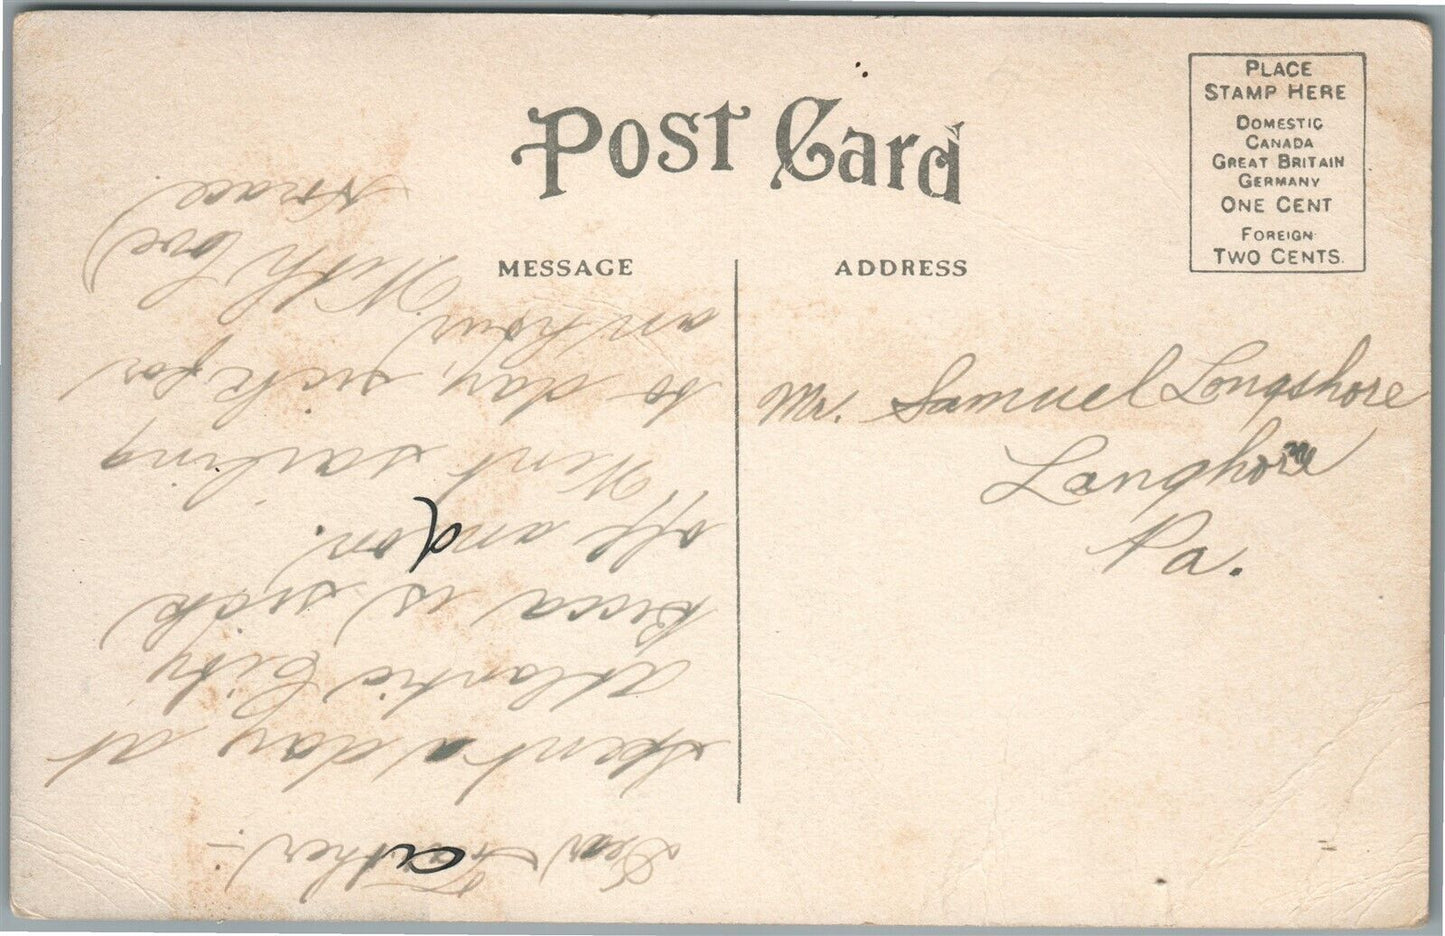 Post Card
PLACE
STAMP HERE
DOMESTIC
CANADA
GREAT BRITAIN
GERMANY
ONE CENT
FOREIGN
TWO CENTS.
MESSAGE
ADDRESS
Mr. Samuel Longshore
Langhorne
Pa.
Dear Father:-
Spent a day at
Atlantic City
is sick
off and on.
Went sailing
to day, sick for
an hour.
With love